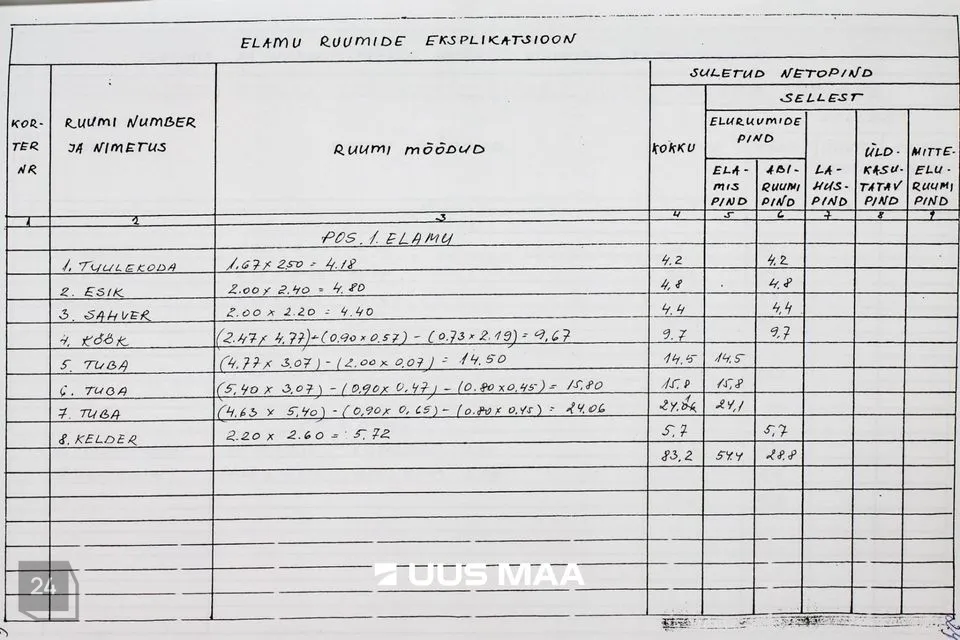 ELAMU RUUMIDE EKSPLIKATSIOON
KOR-
TER
NR
RUUMI NUMBER
JA NIMETUS
RUUMI MÕÕDUD
SULETUD NETOPIND
KOKKU
SELLEST
ELURUUMIDE
PIND
ELA-
MIS
PIND
ABI-
RUUMI
PIND
LA-
HUS-
PIND
ÜLD-
KASU-
TATAV
PIND
MITTE-
ELU-
RUUMI
PIND
1 2 3 4 5 6 7 8 9
POS. 1. ELAMU
1. TUULEKODA 1.67 x 2.50 = 4.18 4.2 4.2
2. ESIK 2.00 x 2.40 = 4.80 4,8 4.8
3. SAHVER 2.00 x 2.20 = 4.40 4.4 4,4
4. KÖÖK (2.47 x 4.77)+(0,90 x 0,57) - (0.73 x 2.19) = 9,67 9.7 9.7
5. TUBA (4.77 x 3.07) - (2.00 x 0,07) = 14.50 14.5 14,5
6. TUBA (5,40 x 3.07) - (0,90 x 0,47) - (0.80 x 0,45) = 15,80 15,8 15,8
7. TUBA (4.63 x 5,40) - (0,90 x 0,65) - (0.80 x 0,45) = 24.06 24,1
8. KELDER 2.20 x 2.60 = 5,72 5,7 5,7
83,2 54.4 28,8
24
UUS MAA